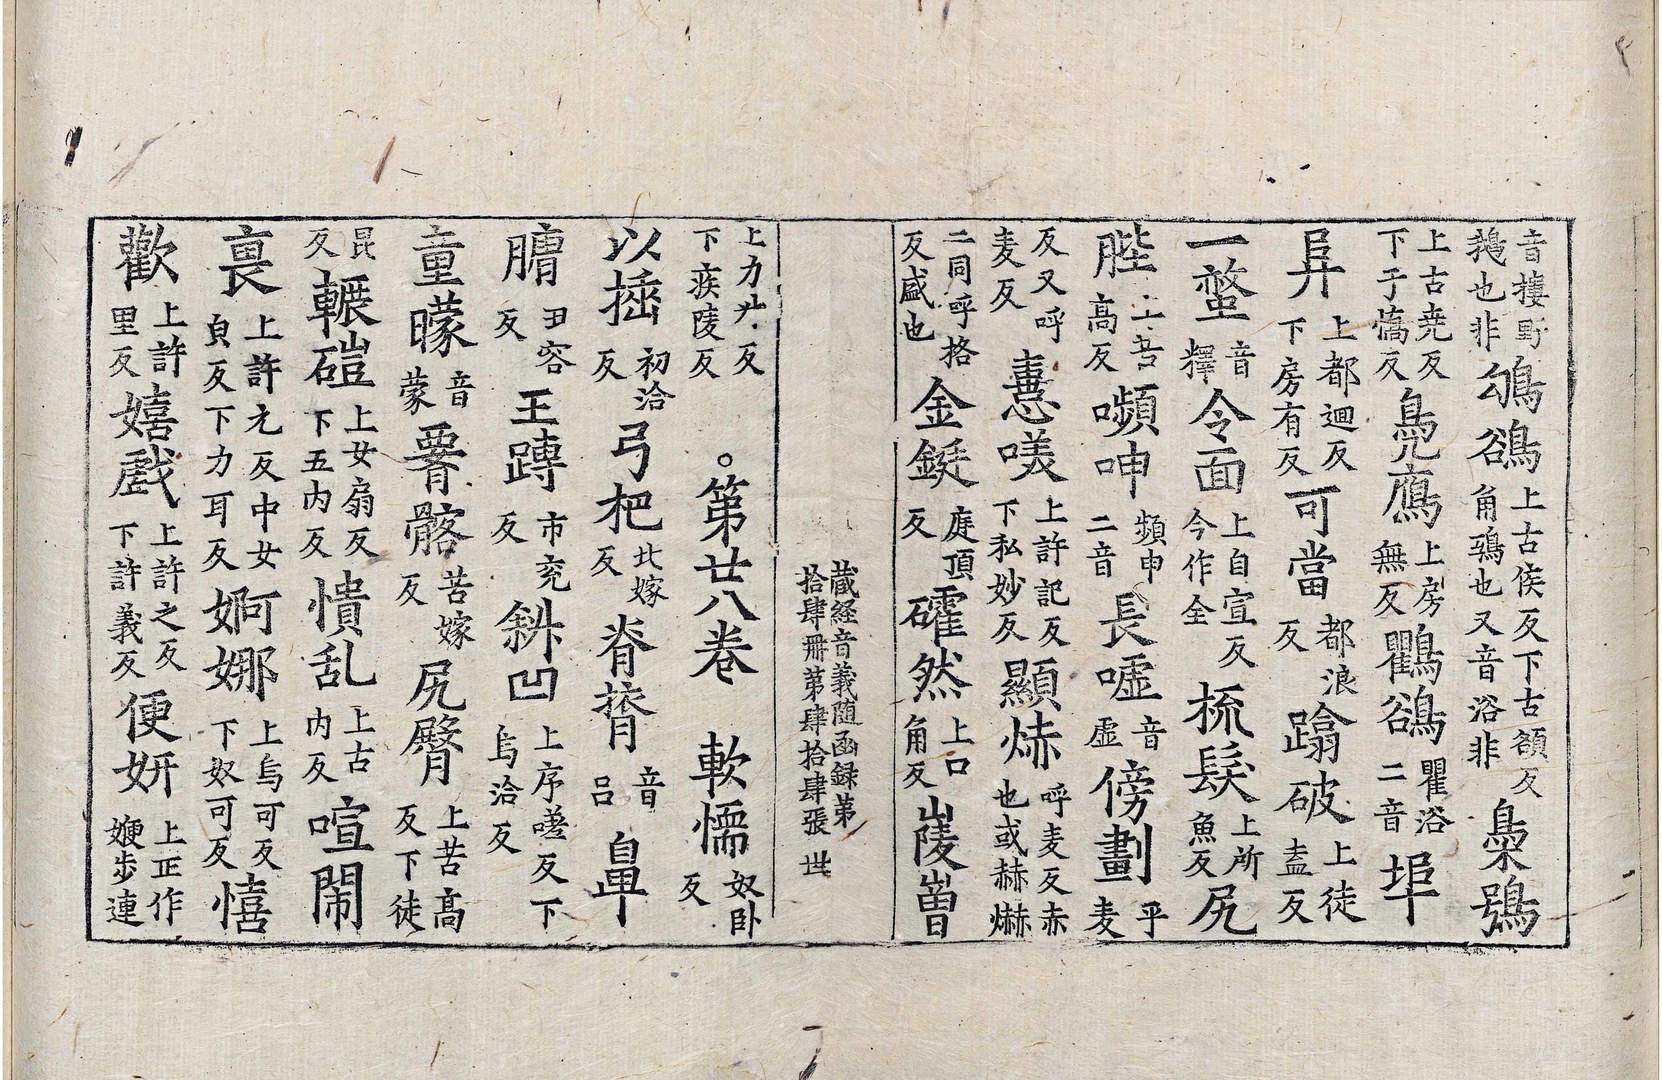 音摟野鵝也非鴢鵒上古侯反下古額反角鵶也又音浴非梟鴞
上古尭反下于憍反鳧鷹上房無反鸜鵒瞿浴二音埠
𨸏上都迴反下房有反可當都浪反蹹破上徒盍反
一螫音釋令面上自宣反今作全梳髮上所魚反尻
䏶上苦高反嚬呻頻申二音長嘘音虚傍劃乎麦
反又呼麦反憙嘆上許記反下私妙反顯焃呼麦反赤也或赫爀
二同呼格反盛也金鋌庭頂反礭然上口角反㥄嶒
藏経音義随函録第拾肆册第肆拾肆張 世
上力屮反下疾陵反。第廿八卷 軟懦奴卧反
以插初洽反弓杷北嫁反脊膂音吕鼻
𦟛丑容反王䏝市兖反斜凹上序嗟反下烏洽反
童矇音蒙䯒髂苦嫁反尻臀上苦高反下徒
昆反輾磑上女扇反下五内反憒乱上古内反喧閙
裛上許元反中女皃反下力耳反婀娜上烏可反下奴可反憘
歡上許里反嬉戲上許之反下許義反便妍上正作㛹步連